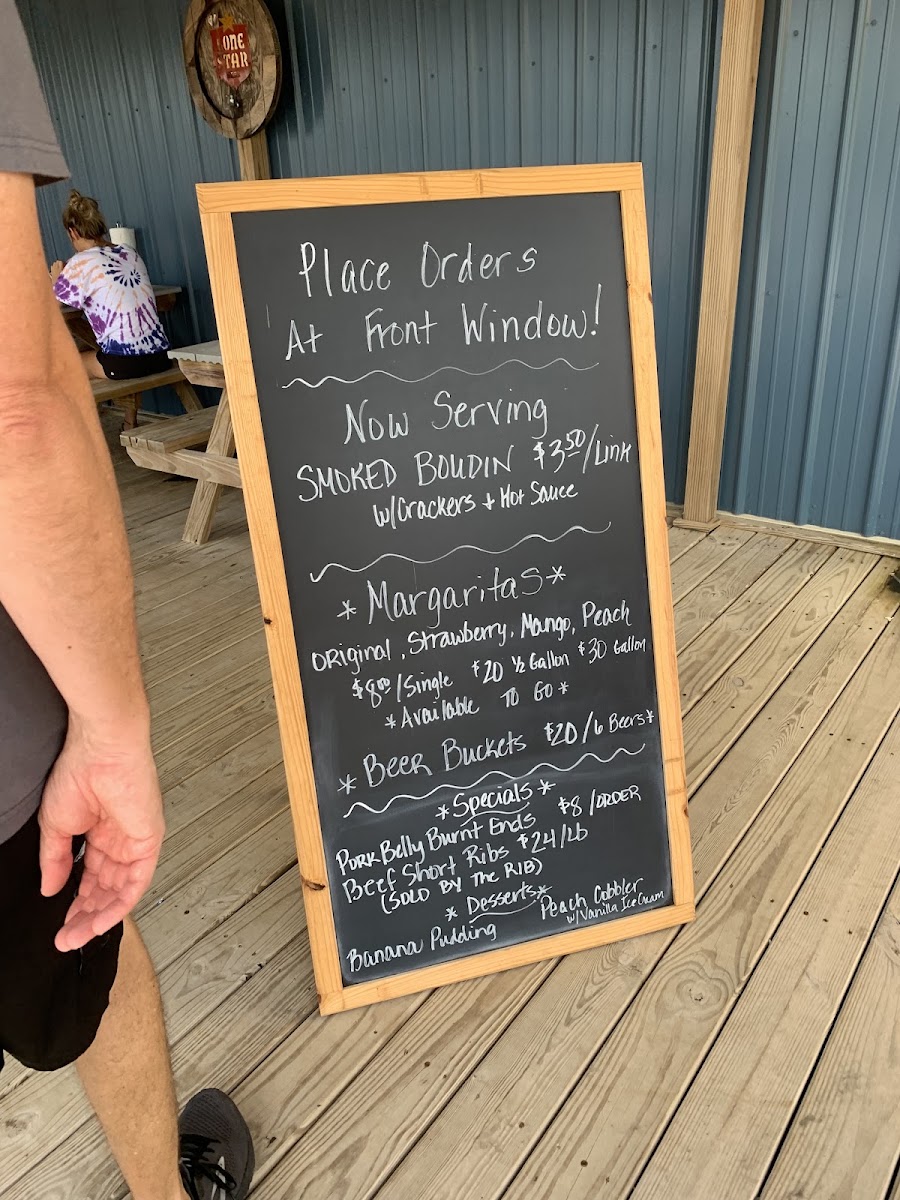 LONE
STAR
Place Orders
At Front Window!
Now Serving
SMOKED BOUDIN $3.50/Link
w/Crackers + Hot Sauce
*Margaritas*
Original, Strawberry, Mango, Peach
$8.00/Single $20 ½ Gallon $30 Gallon
*Available To Go*
*Beer Buckets $20/6 Beers*
*Specials*
Pork Belly Burnt Ends $8/ORDER
Beef Short Ribs $24/lb
(SOLD BY THE RIB)
*Desserts*
Banana Pudding Peach Cobbler
w/Vanilla Ice Cream